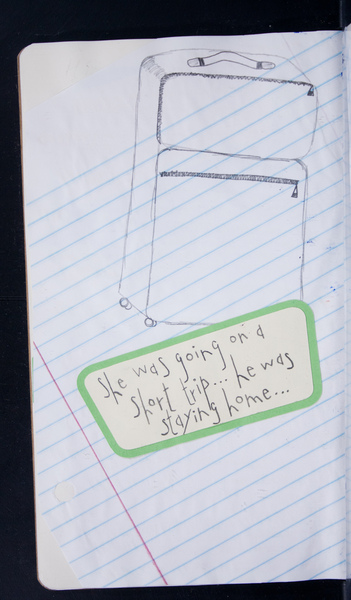 she was going on a
short trip... he was
staying home...